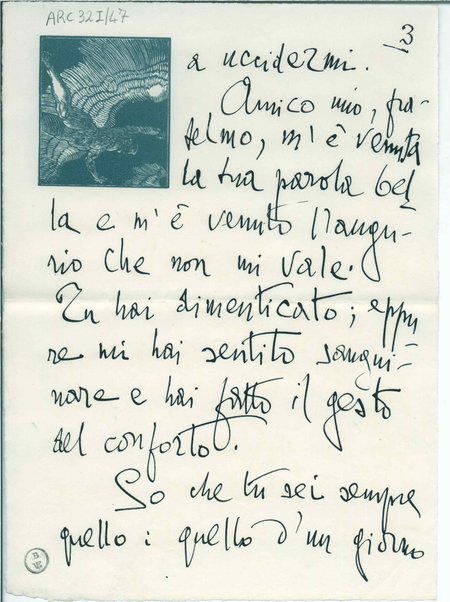 ARC 32 I/47
3
a uccidermi.
Amico mio, fra-
telmo, m'è venuta
la tua parola bel
la e m'è venuto l'augu-
rio che non mi vale.
Tu hai dimenticato; eppu
re mi hai sentito sangui-
nare e hai fatto il gesto
del conforto.
So che tu sei sempre
quello: quello d'un giorno